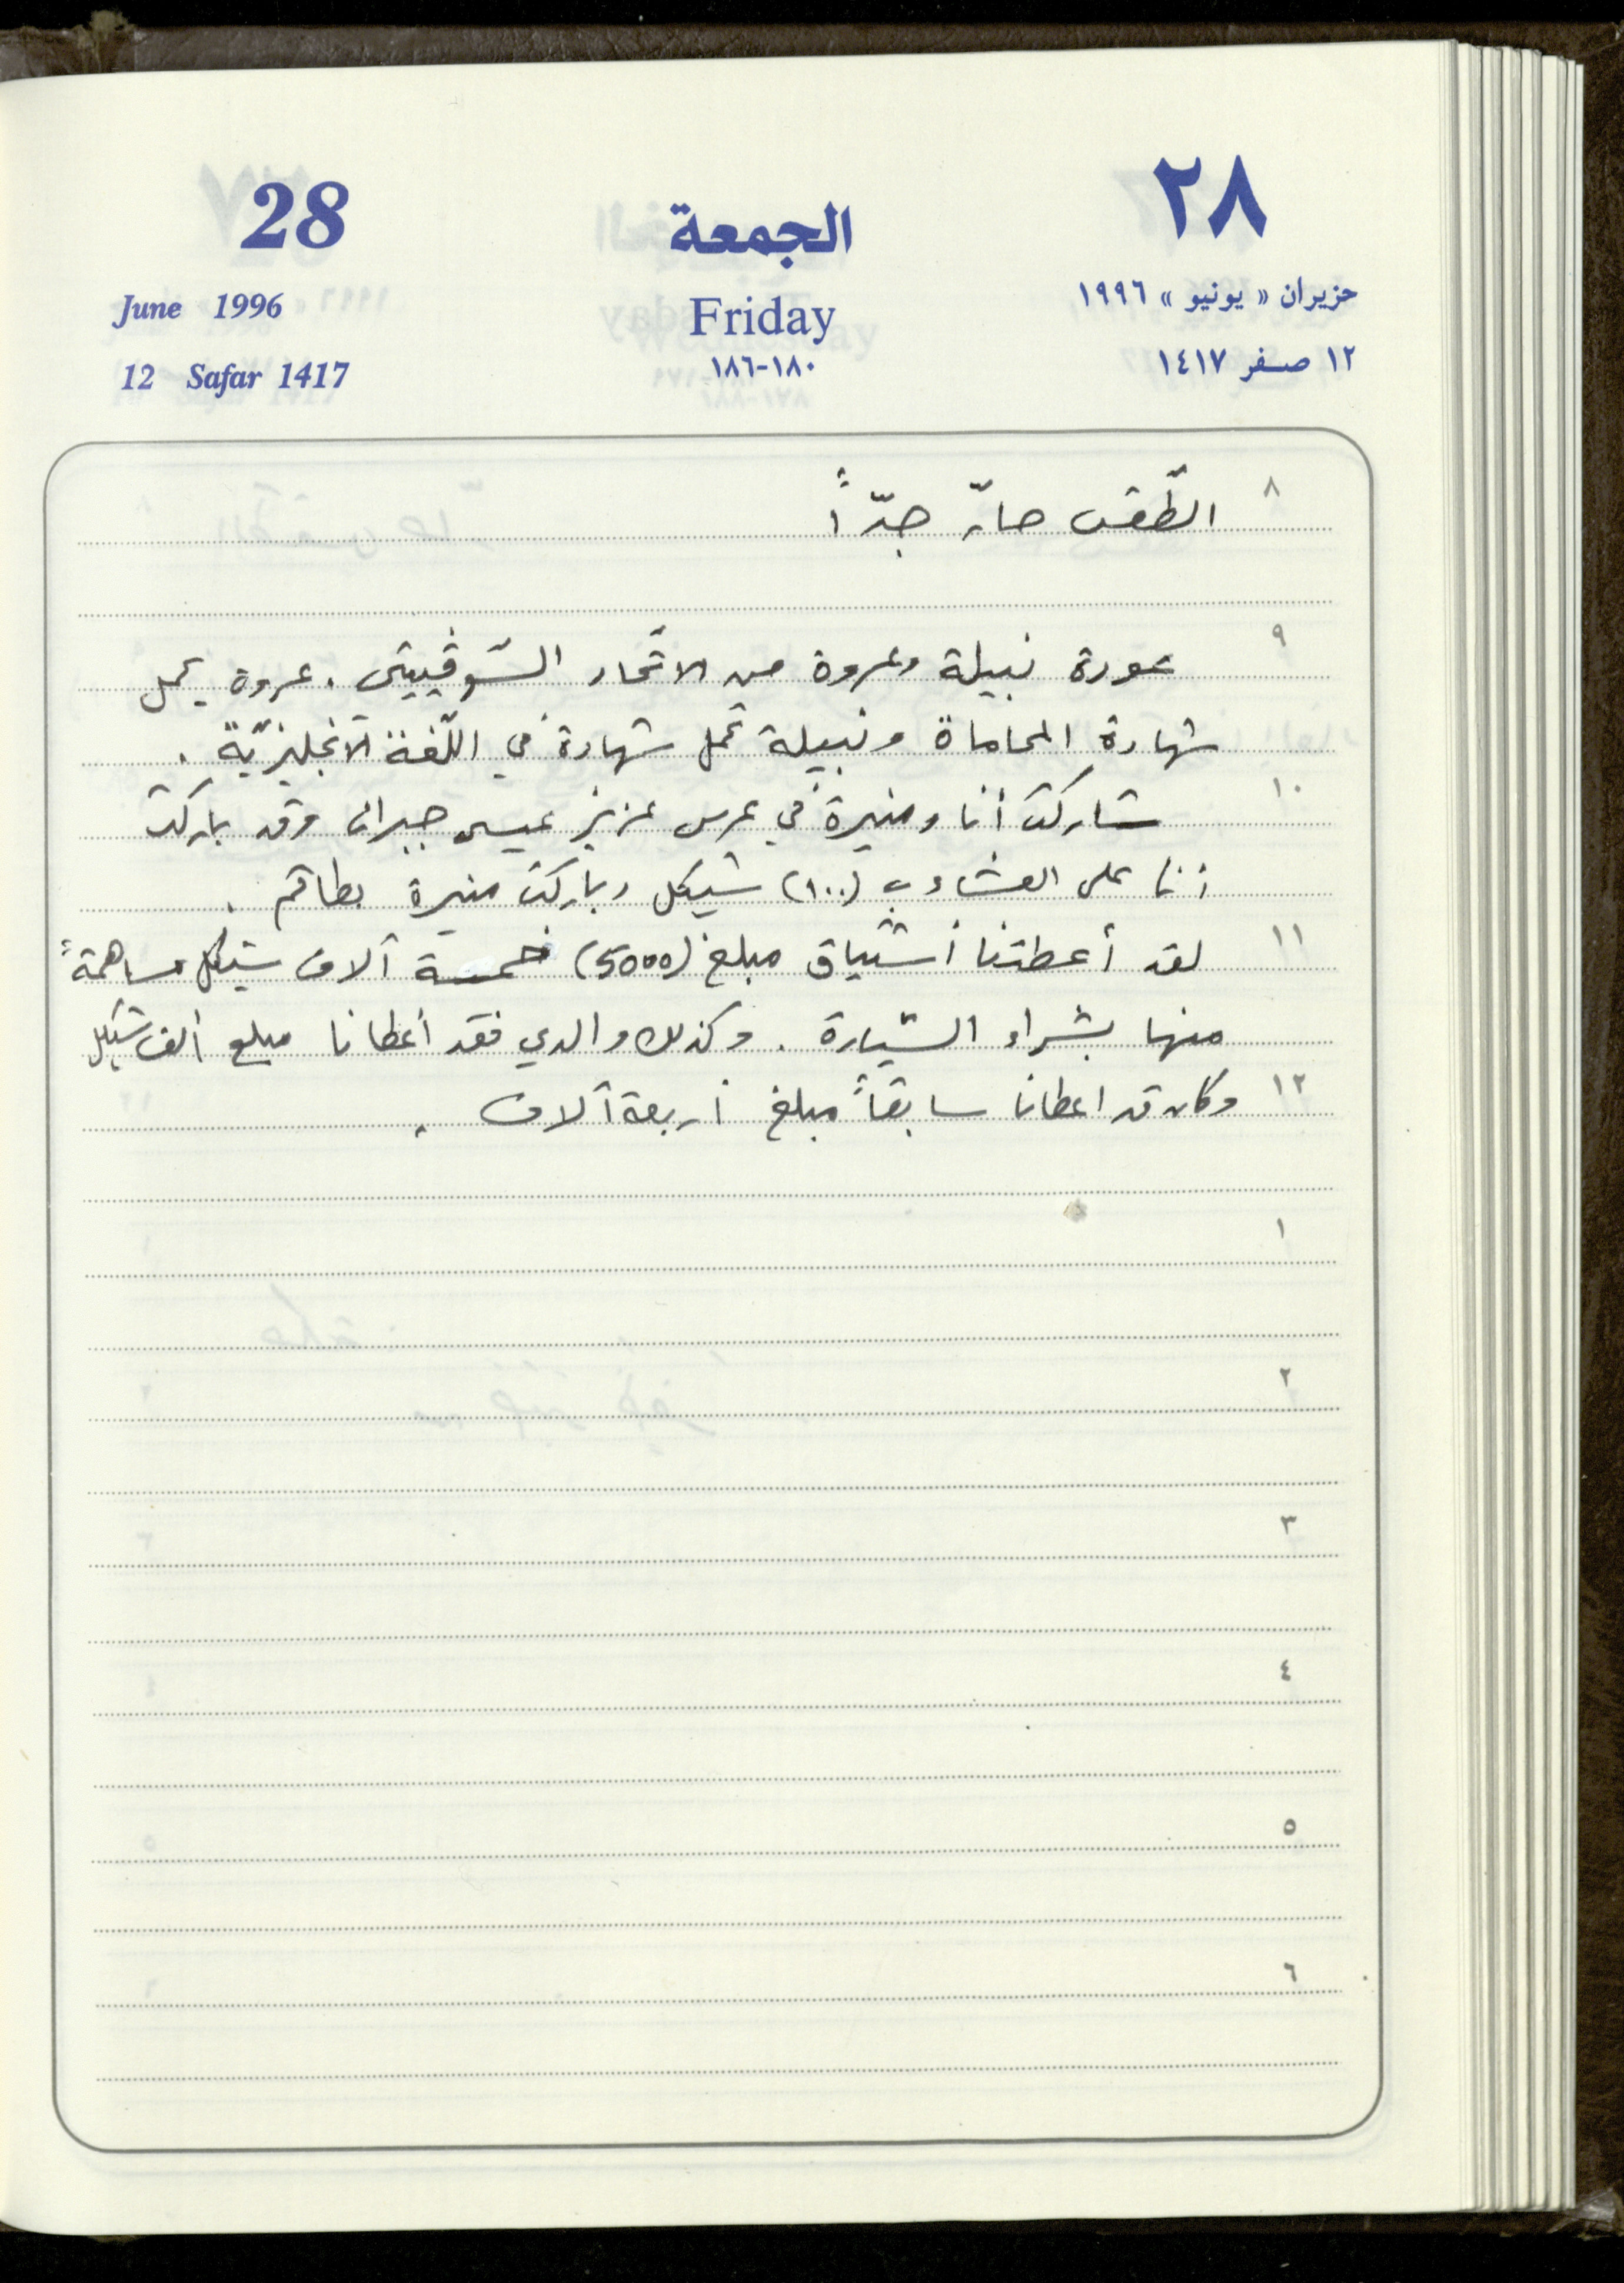 28
الجمعة
٢٨
June 1996
Friday
حزيران « يونيو » ١٩٩٦
12 Safar 1417
١٨٠-١٨٦
١٢ صفر ١٤١٧
٨ الطّقس حارّ جدّاً
٩ عودة نبيلة وعروة من الاتّحاد السّوڤييتي. عروة يحمل
شهادة المحاماة ونبيلة تحمل شهادة في اللّغة الانجليزيّة.
١٠ شاركت أنا ومنيرة في عرس عزيز عيسى جبران وقد باركت
أنا على العشاء ب (١٠٠) شيكل وباركت منيرة بطاقم.
١١ لقد أعطتنا أشتياق مبلغ (5000) خمسة آلاف شيكل مساهمةً
منها بشراء السّيارة. وكذلك والدي فقد أعطانا مبلغ ألف شيكل
١٢ وكان قد اعطانا سابقاً مبلغ أربعة آلاف.
١
٢
٣
٤
٥
٦